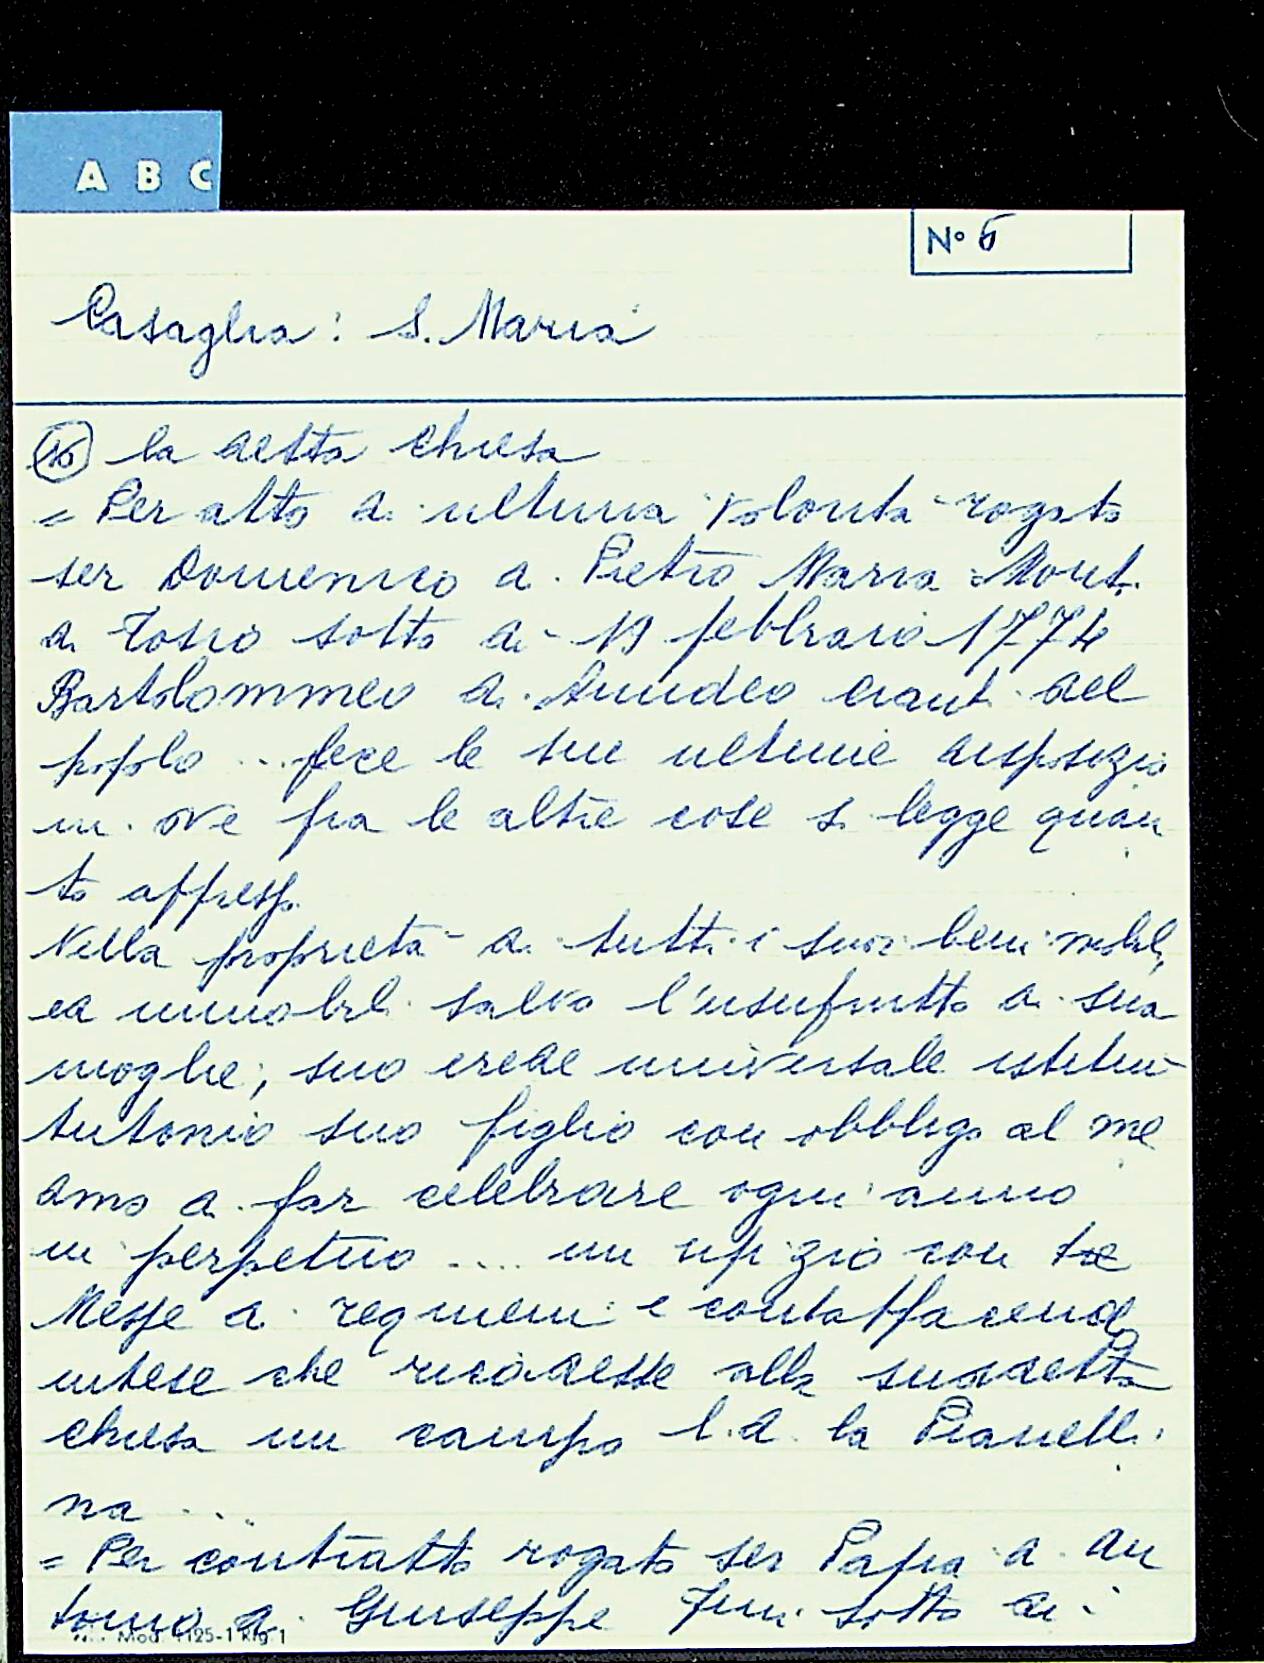 A B C
N° 6
Casaglia: S. Maria
16 la detta chiesa
= Per atto di ultima volontà rogato
ser Domenico di Pietro Maria Mont.
di sotto dì 19 febbraio 1774
Bartolommeo di Amideo del
popolo ... fece le sue ultime disposizio
ni ove fra le altre cose si legge quan
to appresso
Nella proprietà di tutti i suoi beni mobili
ed immobili salvo l'usufrutto di sua
moglie; suo erede universale istituì
Antonio suo figlio con obbligo al me
dmo di far celebrare ogni anno
in perpetuo .... un ufizio con tre
Messe di requiem e
intese che ricadesse alla suddetta
chiesa un campo l.d. la Pianelli
na ....
= Per contratto rogato ser di An
tonio di Giuseppe sotto dì
Mod. 1125-1 Rig 1